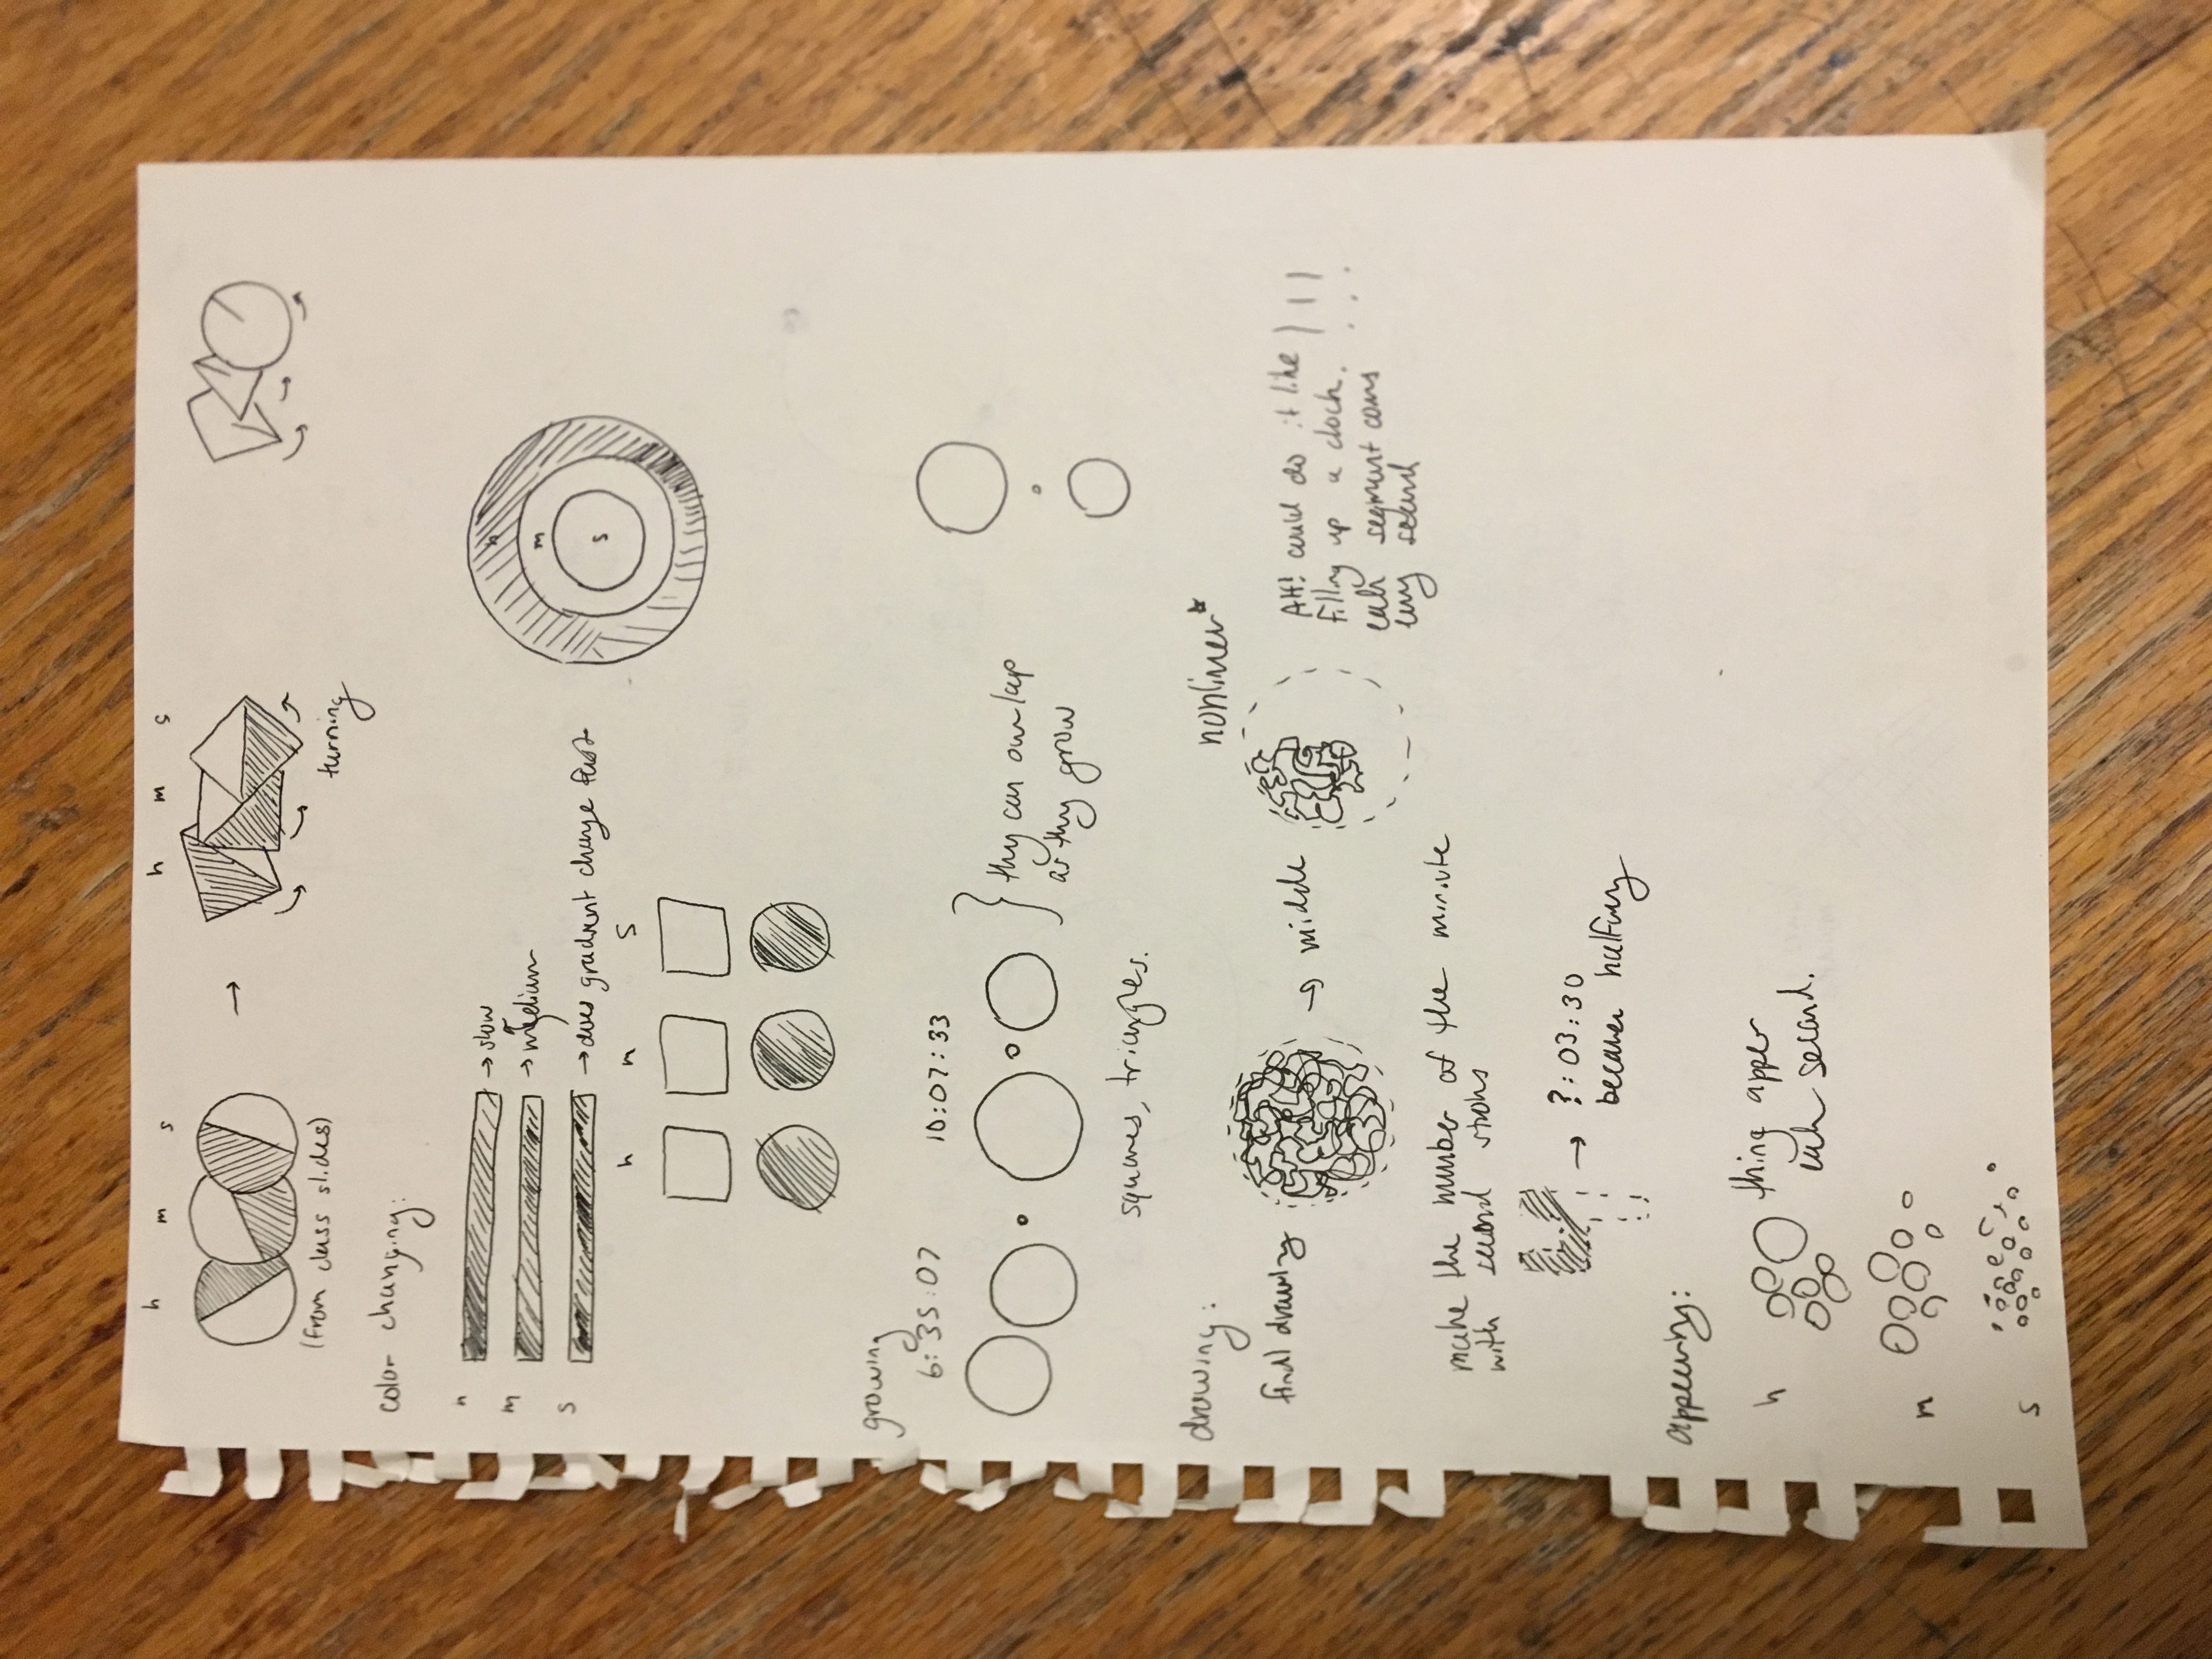 h m s
h m s
(from class slides)
turning
color changing:
h
→ slow
m
→ medium
s
→ does gradient change fast
h
m
s
h m S
growing
6:35:07
10:07:33
they can overlap
as they grow
squares, triangles.
drawing:
nonlinear*
final drawing
→ middle
AH! could do it like
filling up a clock.
each segment
every second
!!!
make the number of the minute
with second
→ ?:03:30
because halfway
appearing:
h
thing appear
each second.
m
s